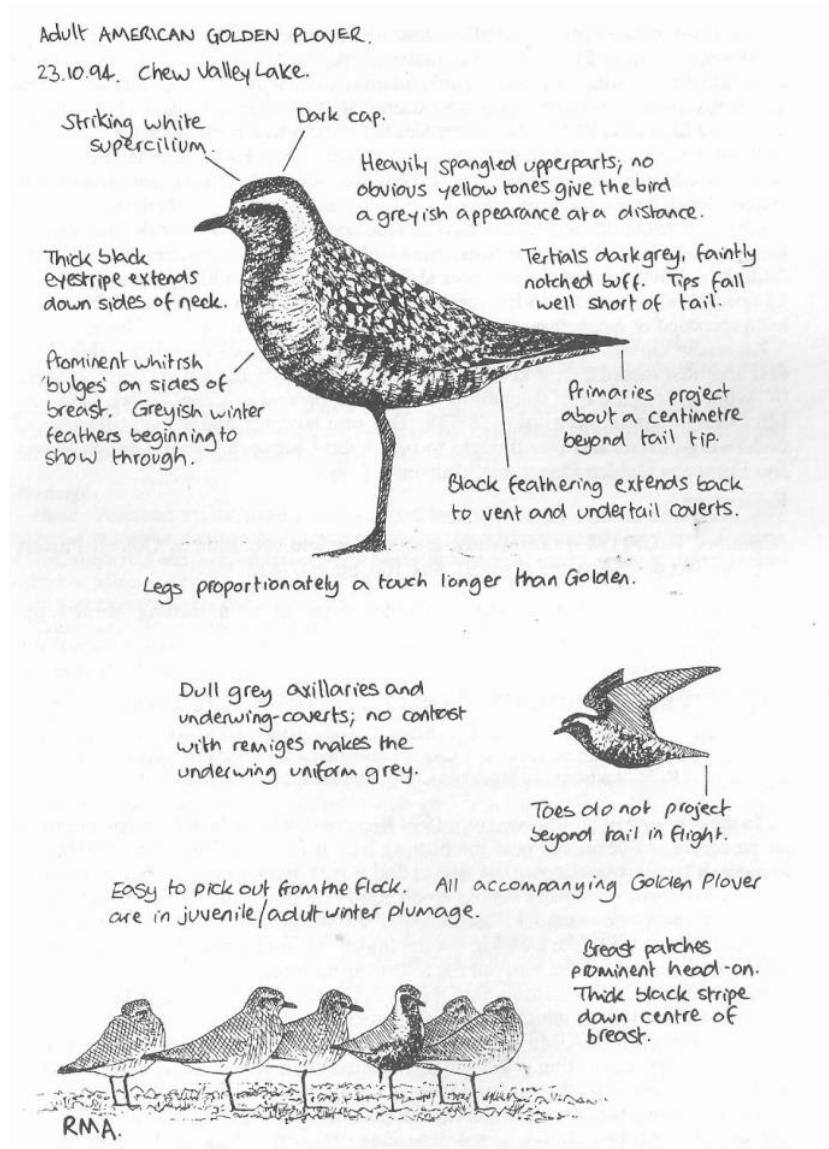 Adult AMERICAN GOLDEN PLOVER.
23.10.94. Chew Valley Lake.
Striking white
supercilium.
Dark cap.
Heavily spangled upperparts; no
obvious yellow tones give the bird
a greyish appearance at a distance.
Thick black
eyestripe extends
down sides of neck.
Tertials dark grey, faintly
notched buff. Tips fall
well short of tail.
Prominent whitish
'bulges' on sides of
breast. Greyish winter
feathers beginning to
show through.
Primaries project
about a centimetre
beyond tail tip.
Black feathering extends back
to vent and undertail coverts.
Legs proportionately a touch longer than Golden.
Dull grey axillaries and
underwing-coverts; no contrast
with remiges makes the
underwing uniform grey.
Toes do not project
beyond tail in flight.
Easy to pick out from the flock. All accompanying Golden Plover
are in juvenile/adult winter plumage.
Breast patches
prominent head-on.
Thick black stripe
down centre of
breast.
RMA.